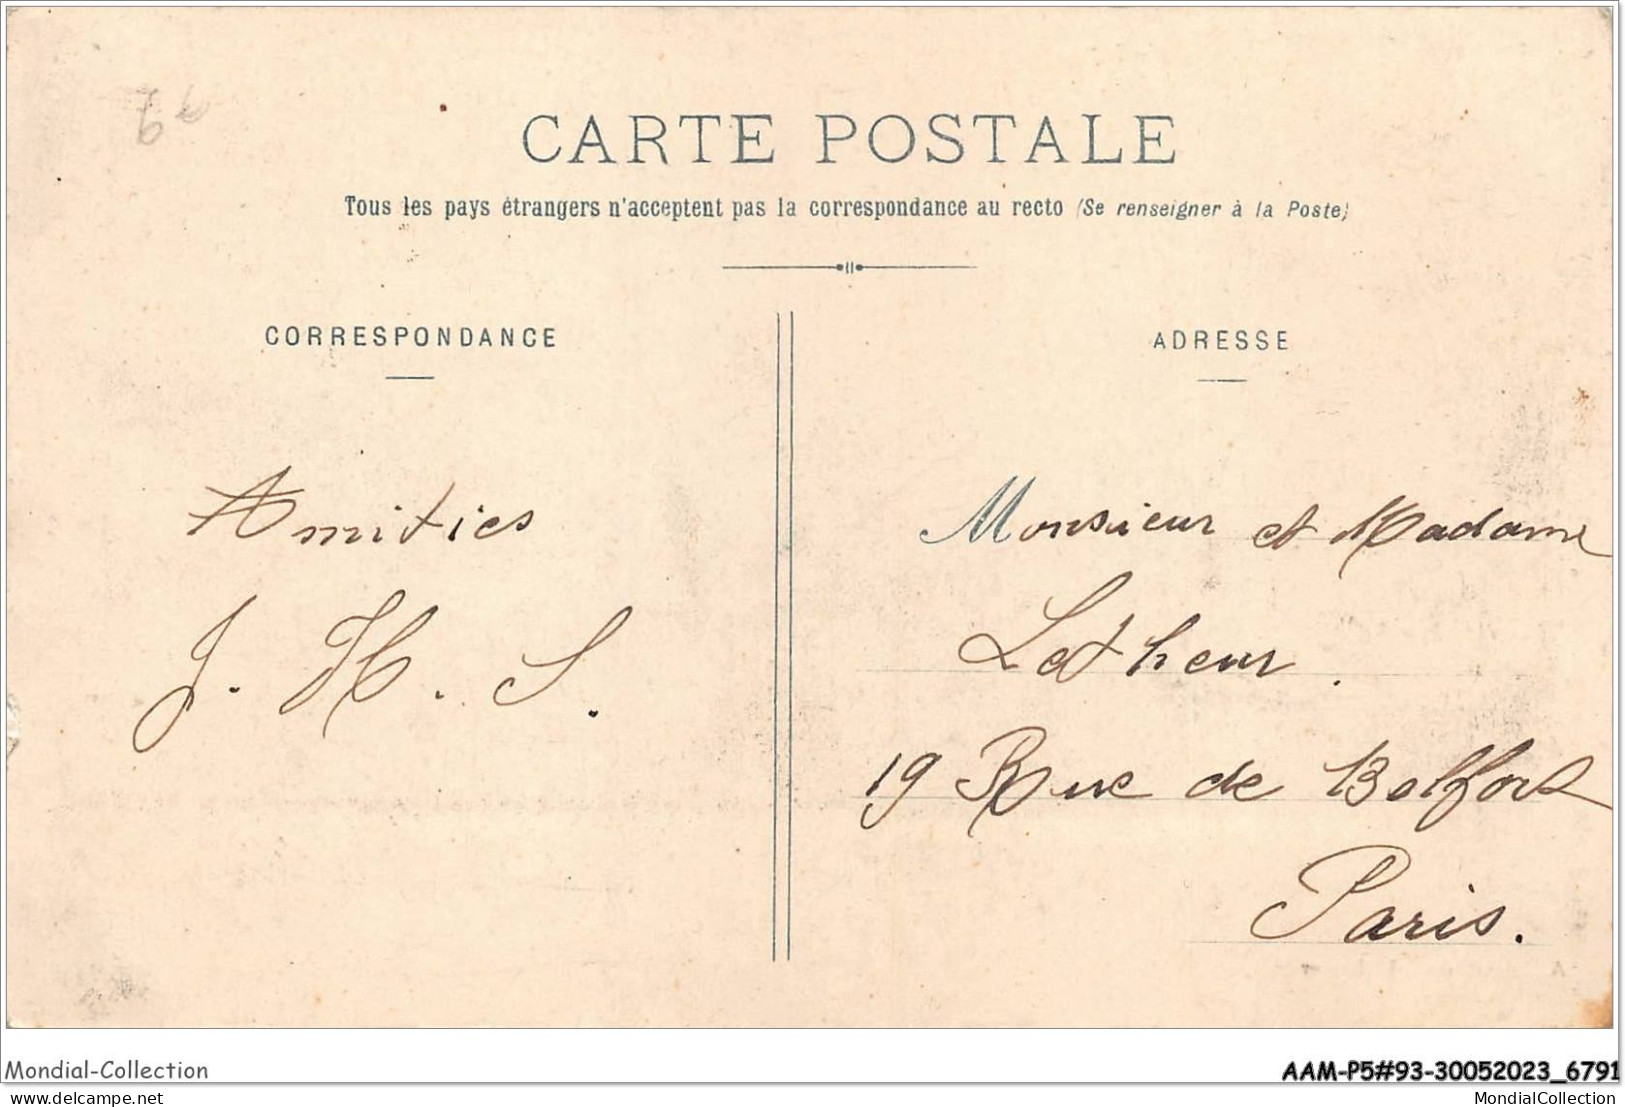 CARTE POSTALE
Tous les pays étrangers n'acceptent pas la correspondance au recto (Se renseigner à la Poste)
CORRESPONDANCE
Amities
J. H. S.
ADRESSE
Monsieur et Madame
Letheur.
19 Rue de Belfort
Paris.
Mondial-Collection
AAM-P5#93-30052023_6791
delcampe.net
MondialCollection